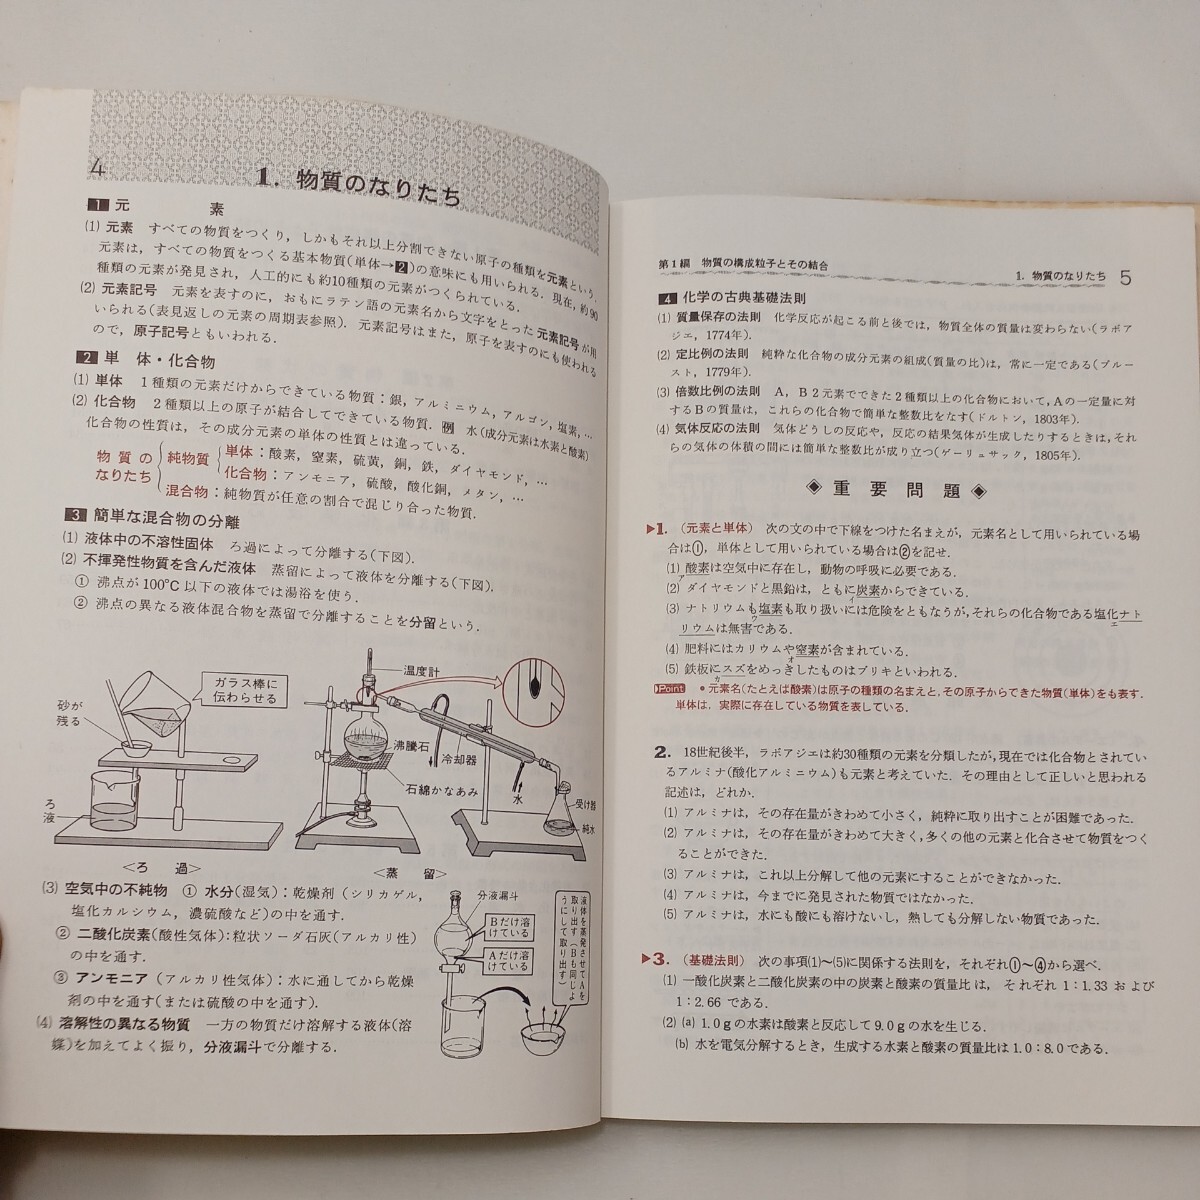 4
1. 物質のなりたち
1 元 素
(1) 元素 すべての物質をつくり，しかもそれ以上分割できない原子の種類を元素という．
元素は，すべての物質をつくる基本物質(単体→2)の意味にも用いられる．現在，約90
種類の元素が発見され，人工的にも約10種類の元素がつくられている．
(2) 元素記号 元素を表すのに，おもにラテン語の元素名から文字をとった元素記号が用
いられる(表見返しの元素の周期表参照)．元素記号はまた，原子を表すのにも使われる
ので，原子記号ともいわれる．
2 単 体・化合物
(1) 単体 1種類の元素だけからできている物質：銀，アルミニウム，アルゴン，塩素，…
(2) 化合物 2種類以上の原子が結合してできている物質．例 水(成分元素は水素と酸素)
化合物の性質は，その成分元素の単体の性質とは違っている．
物質の
なりたち
純物質
単体：酸素，窒素，硫黄，銅，鉄，ダイヤモンド，…
化合物：アンモニア，硫酸，酸化銅，メタン，…
混合物：純物質が任意の割合で混じり合った物質．
3 簡単な混合物の分離
(1) 液体中の不溶性固体 ろ過によって分離する(下図)．
(2) 不揮発性物質を含んだ液体 蒸留によって液体を分離する(下図)．
① 沸点が100℃以下の液体では湯浴を使う．
② 沸点の異なる液体混合物を蒸留で分離することを分留という．
ガラス棒に
伝わらせる
砂が
残る
ろ
液
<ろ 過>
温度計
沸騰石
冷却器
石綿かなあみ
水
受け器
純水
<蒸 留>
(3) 空気中の不純物 ① 水分(湿気)：乾燥剤(シリカゲル，
塩化カルシウム，濃硫酸など)の中を通す．
② 二酸化炭素(酸性気体)：粒状ソーダ石灰(アルカリ性)
の中を通す．
③ アンモニア(アルカリ性気体)：水に通してから乾燥
剤の中を通す(または硫酸の中を通す)．
(4) 溶解性の異なる物質 一方の物質だけ溶解する液体(溶
媒)を加えてよく振り，分液漏斗で分離する．
分液漏斗
Bだけ溶
けている
Aだけ溶
けている
液体を蒸発させてAを
取り出す(Bも同じよ
うにして取り出す)
第1編 物質の構成粒子とその結合
1. 物質のなりたち 5
4 化学の古典基礎法則
(1) 質量保存の法則 化学反応が起こる前と後では，物質全体の質量は変わらない(ラボア
ジエ，1774年)．
(2) 定比例の法則 純粋な化合物の成分元素の組成(質量の比)は，常に一定である(プルー
スト，1779年)．
(3) 倍数比例の法則 A，B2元素でできた2種類以上の化合物において，Aの一定量に対
するBの質量は，これらの化合物で簡単な整数比をなす(ドルトン，1803年)．
(4) 気体反応の法則 気体どうしの反応や，反応の結果気体が生成したりするときは，それ
らの気体の体積の間には簡単な整数比が成り立つ(ゲーリュサック，1805年)．
◈ 重要問題 ◈
▶1. (元素と単体) 次の文の中で下線をつけた名まえが，元素名として用いられている場
合は①，単体として用いられている場合は②を記せ．
(1) 酸素は空気中に存在し，動物の呼吸に必要である．
ア
(2) ダイヤモンドと黒鉛は，ともに炭素からできている．
イ
(3) ナトリウムも塩素も取り扱いには危険をともなうが，それらの化合物である塩化ナト
ウ エ
リウムは無害である．
(4) 肥料にはカリウムや窒素が含まれている．
オ
(5) 鉄板にスズをめっきしたものはブリキといわれる．
カ
Point ●元素名(たとえば酸素)は原子の種類の名まえと，その原子からできた物質(単体)をも表す．
単体は，実際に存在している物質を表している．
2. 18世紀後半，ラボアジエは約30種類の元素を分類したが，現在では化合物とされてい
るアルミナ(酸化アルミニウム)も元素と考えていた．その理由として正しいと思われる
記述は，どれか．
(1) アルミナは，その存在量がきわめて小さく，純粋に取り出すことが困難であった．
(2) アルミナは，その存在量がきわめて大きく，多くの他の元素と化合させて物質をつく
ることができた．
(3) アルミナは，これ以上分解して他の元素にすることができなかった．
(4) アルミナは，今までに発見された物質ではなかった．
(5) アルミナは，水にも酸にも溶けないし，熱しても分解しない物質であった．
▶3. (基礎法則) 次の事項(1)〜(5)に関係する法則を，それぞれ①〜④から選べ．
(1) 一酸化炭素と二酸化炭素の中の炭素と酸素の質量比は，それぞれ1：1.33および
1：2.66である．
(2) (a) 1.0gの水素は酸素と反応して9.0gの水を生じる．
(b) 水を電気分解するとき，生成する水素と酸素の質量比は1.0：8.0である．